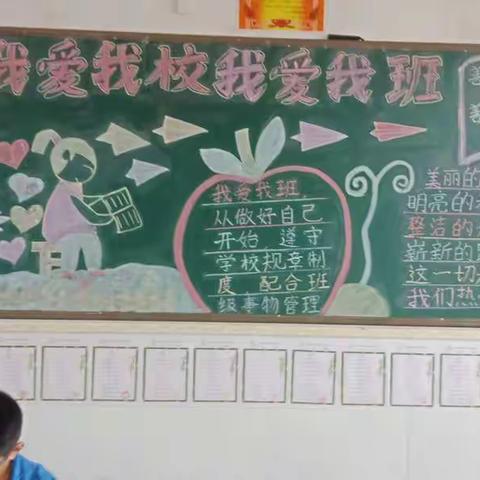 我爱我校我爱我班
我爱我班
从做好自己
开始 遵守
学校规章制
度 配合班
级事物管理
美丽的
明亮的
整洁的
崭新的
这一切
我们热